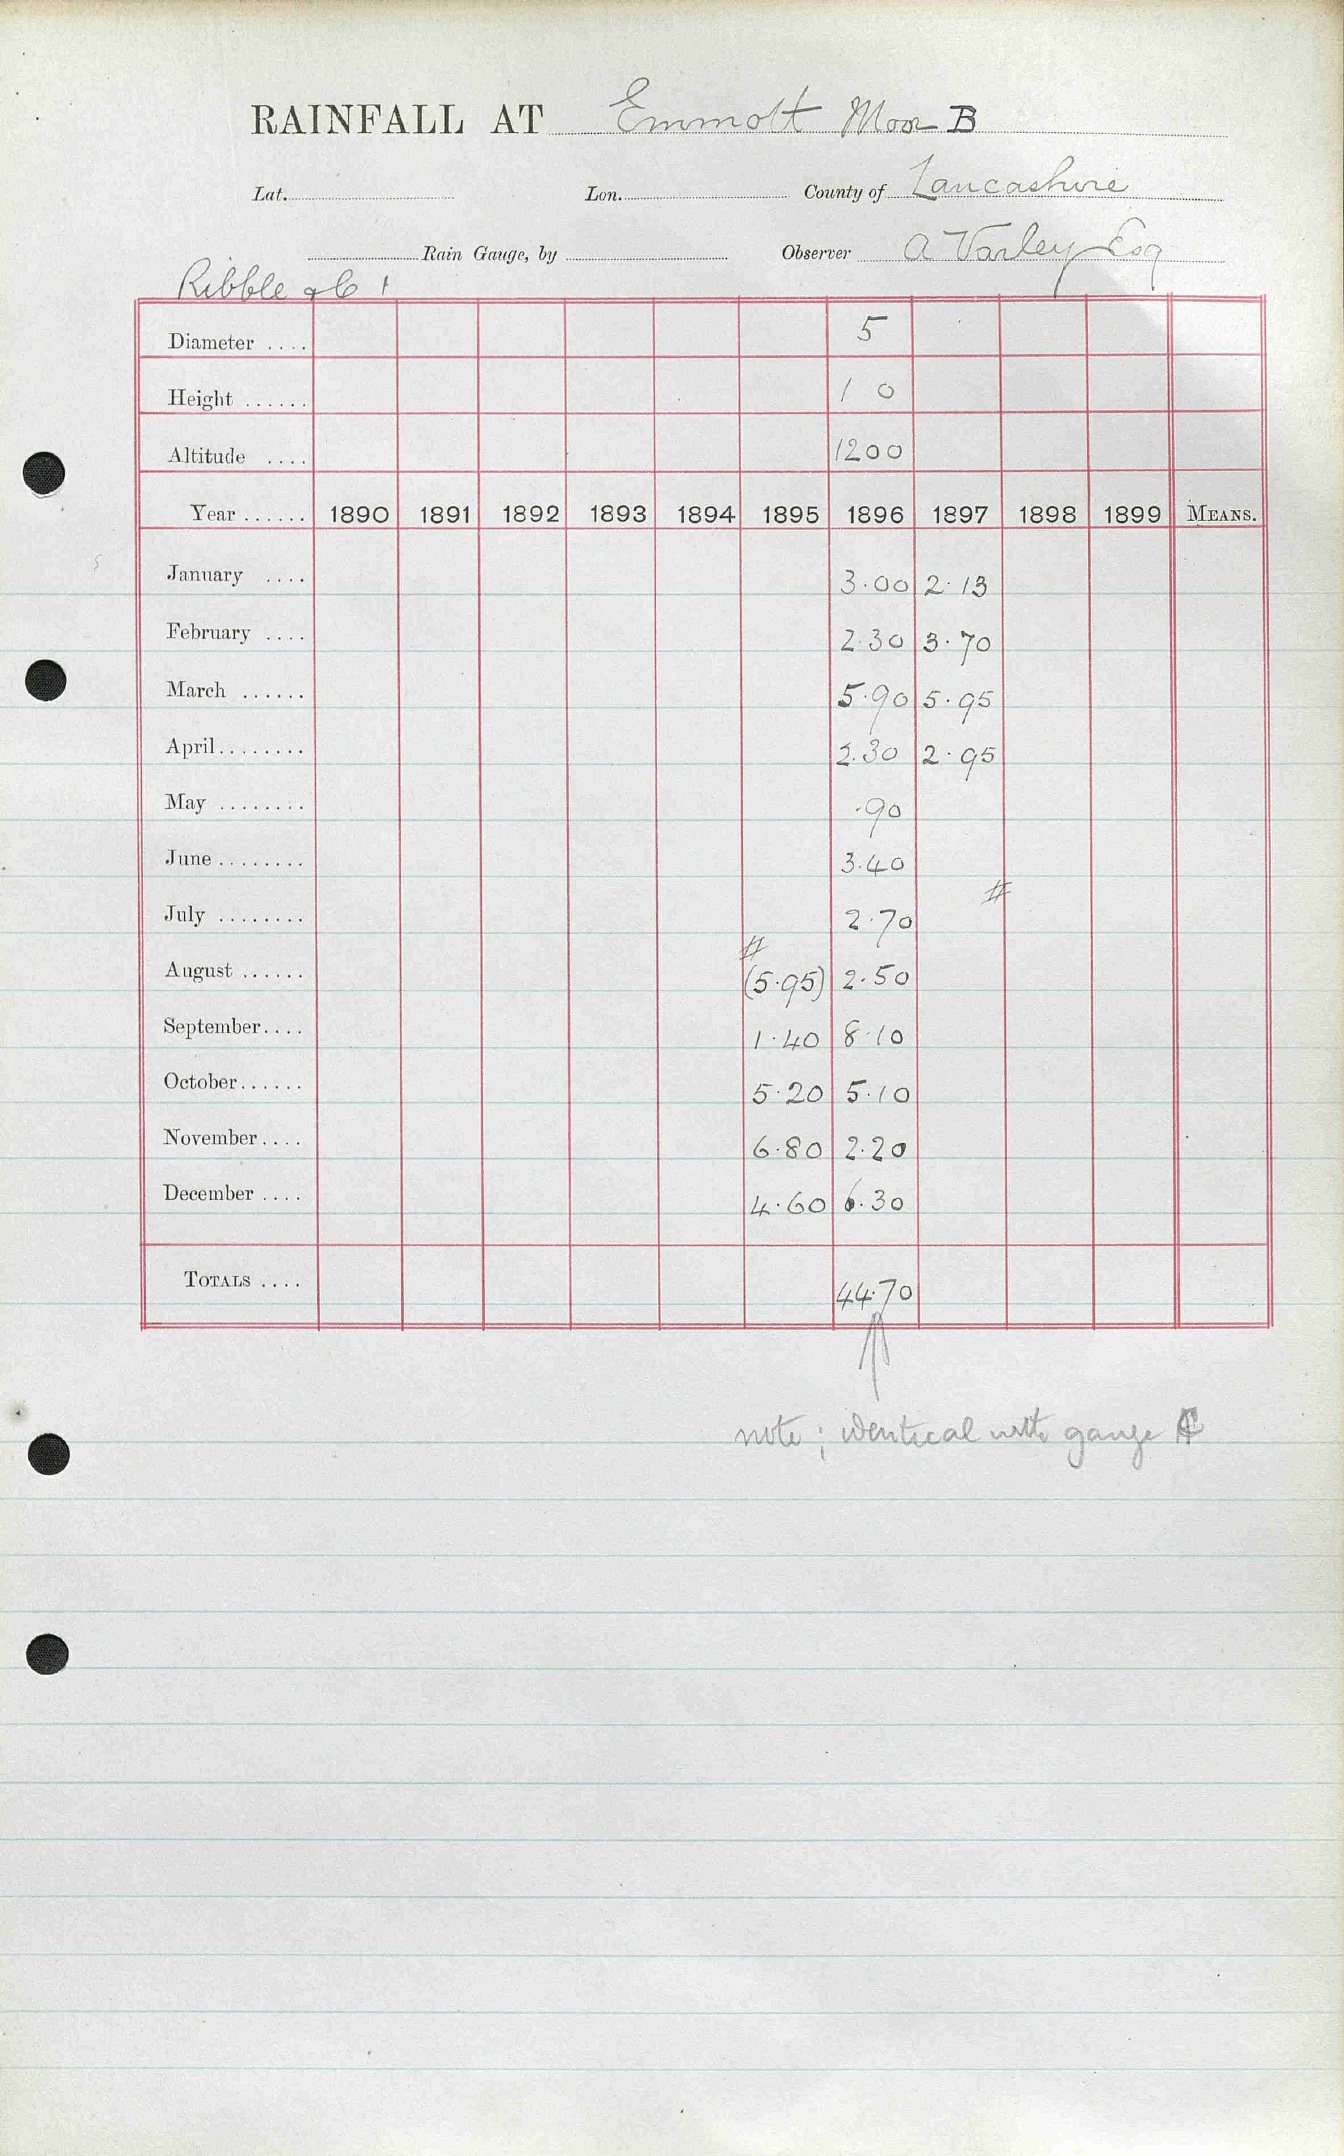 RAINFALL AT Emmott Moor B
Lat. Lon. County of Lancashire
Rain Gauge, by Observer A Varley Esq
Ribble &c 1
Diameter .... 5
Height ...... 1 0
Altitude .... 1200
Year ...... 1890 1891 1892 1893 1894 1895 1896 1897 1898 1899 MEANS.
January .... 3.00 2.13
February .... 2.30 3.70
March ...... 5.90 5.95
April ........ 2.30 2.95
May ........ .90
June ........ 3.40
#
July ........ 2.70
#
August ...... (5.95) 2.50
September .... 1.40 8.10
October ...... 5.20 5.10
November .... 6.80 2.20
December .... 4.60 6.30
TOTALS .... 44.70
note; identical with gauge C